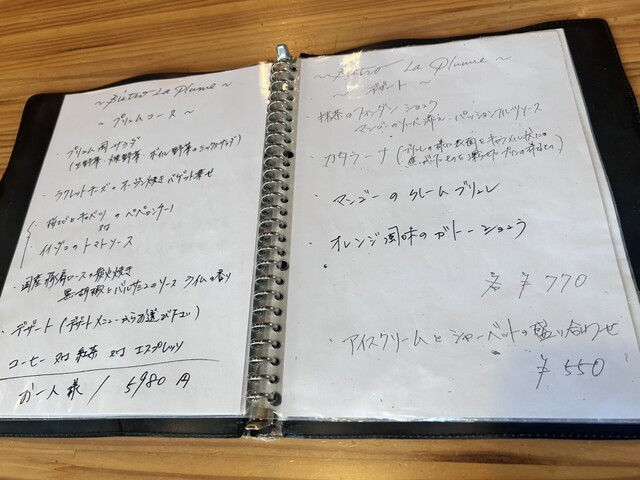 ~ Bistro La Plume ~
~ プリュムコース ~
・プリュム風サラダ
(生野菜・焼野菜・ボイル野菜のミックスサラダ)
・ラクレットチーズのオーブン焼き バゲット乗せ
・桜えびとキャベツのペペロンチーノ
又は
・イイダコのトマトソース
・国産豚肩ロースの炭火焼き
黒胡椒とバルサミコのソース ライムの香り
・デザート (デザートメニューからお選び下さい)
コーヒー 又は 紅茶 又は エスプレッソ
お一人様 / 5980円
~ Bistro La Plume ~
~ デザート ~
・抹茶のフォンダンショコラ
マンゴーのソルベ添え・パッションフルーツソース
・カタラーナ (ブリュレの
・マンゴーのクレームブリュレ
・オレンジ風味のガトーショコラ
各 ¥770
・アイスクリームとシャーベットの盛り合わせ
¥550